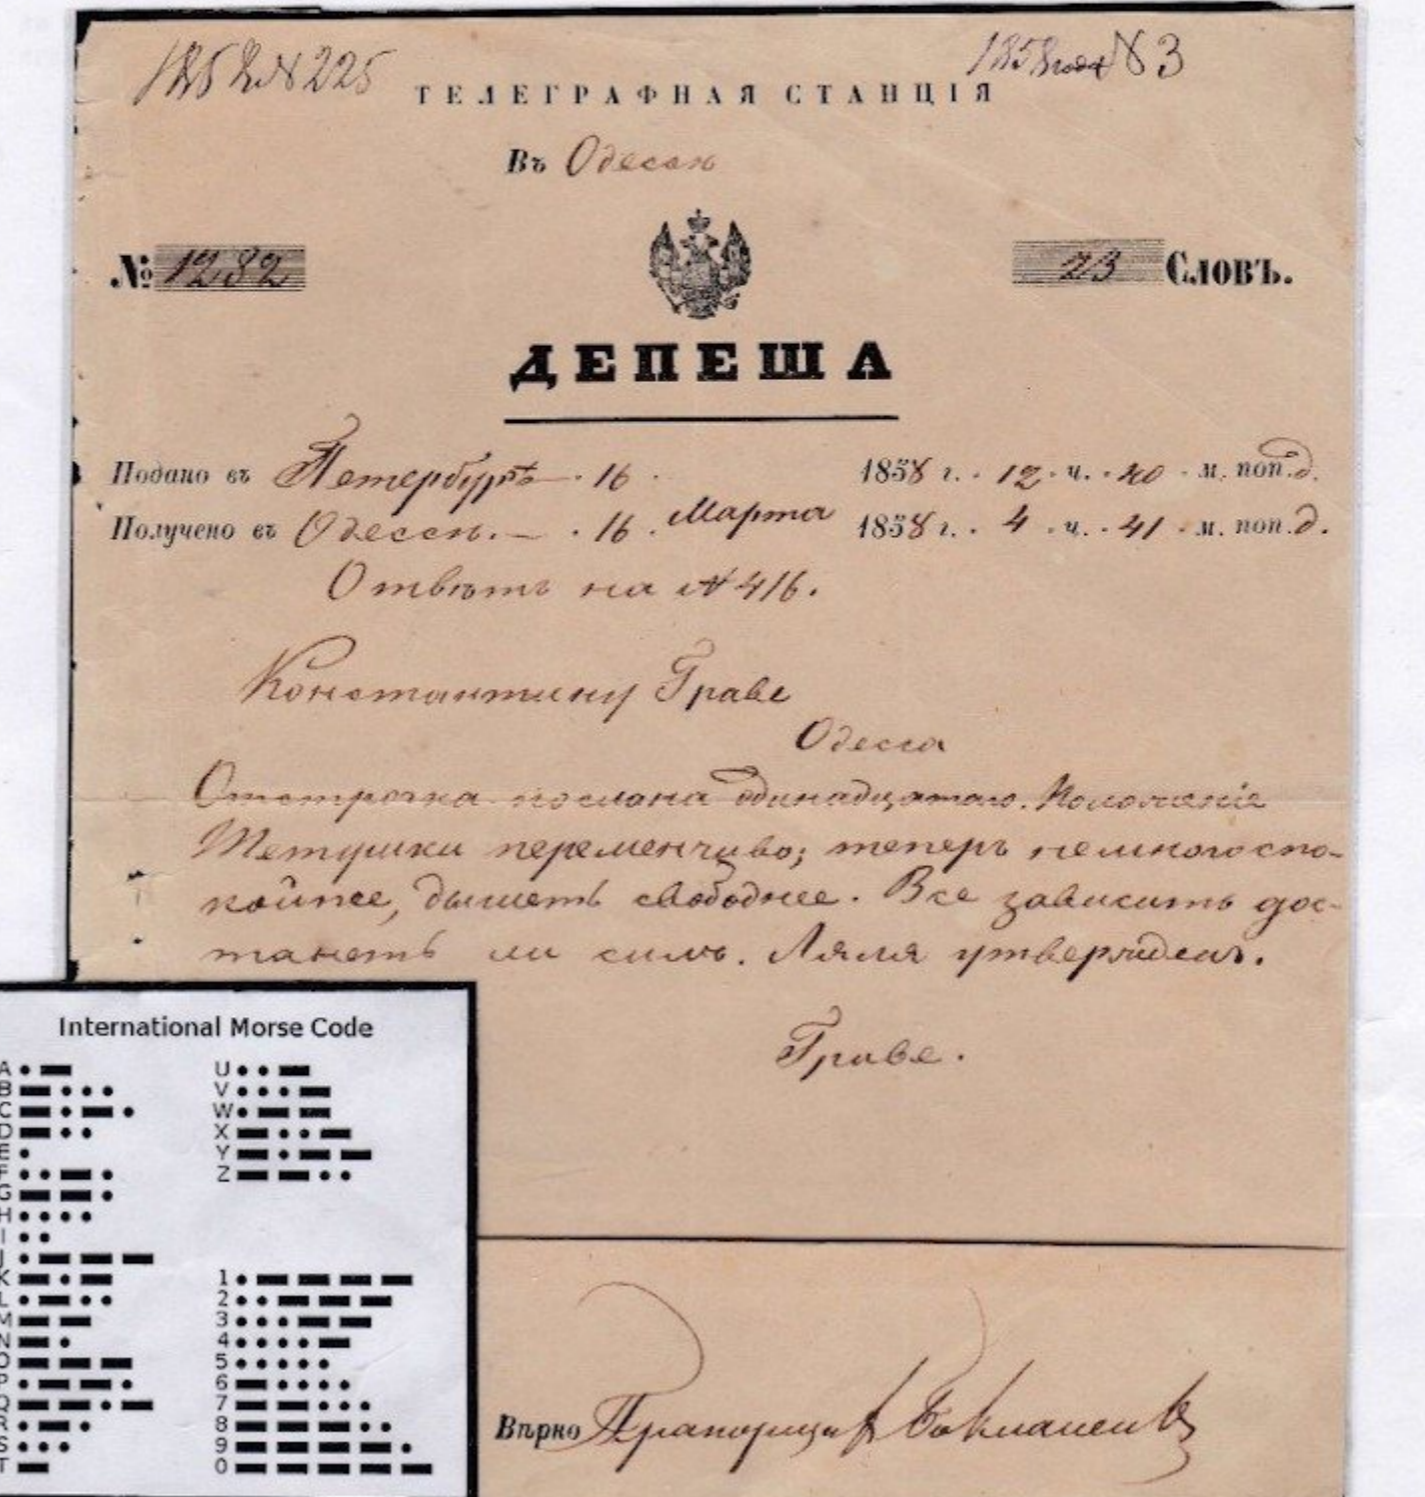 1858 № 225
1858 года № 3
ТЕЛЕГРАФНАЯ СТАНЦІЯ
Въ Одессѣ
№ 1282
23 Словъ.
ДЕПЕША
Подано въ Петербургѣ 16 1858 г. 12 ч. 40 м. поп. д.
Получено въ Одессѣ. 16 Марта 1858 г. 4 ч. 41 м. поп. д.
Отвѣтъ на № 416.
Константину Граве
Одесса
Отсрочка послана одинадцатаго. Положеніе
Тетушки переменчиво; теперь немного спо-
койнее, дышетъ свободнее. Все зависитъ дос-
танетъ ли силъ. Ляля утвержденъ.
Граве.
Вѣрно Прапорщикъ
International Morse Code
A
B
C
D
E
F
G
H
I
J
K
L
M
N
O
P
Q
R
S
T
U
V
W
X
Y
Z
1
2
3
4
5
6
7
8
9
0